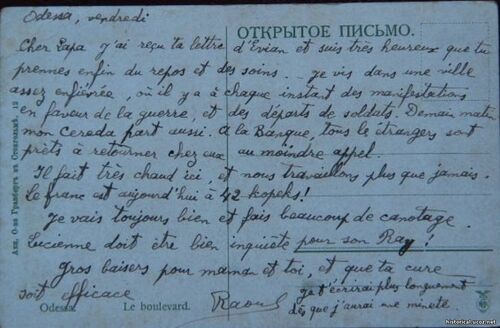 Odessa, vendredi
ОТКРЫТОЕ ПИСЬМО.
Cher Papa j'ai reçu ta lettre d'Evian et suis très heureux que tu
prennes enfin du repos et des soins. – je vis dans une ville
assez enfiévrée, où il y a à chaque instant des manifestations
en faveur de la guerre, et des départs de soldats. Demain matin
mon Cereda part aussi. A la Banque, tous le étrangers sont
prêts à retourner chez eux au moindre appel.
Il fait très chaud ici et nous travaillons plus que jamais.
le franc est aujourd'hui à 42 kopeks!
Je vais toujours bien et fais beaucoup de canotage.
Lucienne doit être bien inquiète pour son Ray!
Gros baisers pour maman et toi, et que ta cure
soit efficace
Raoul
je t'écrirai plus longuement
dès que j'aurai une minute.
Odessa. Le boulevard.
Акц. О-во Гранбергъ въ Стокгольмѣ.
historical.ucoz.net